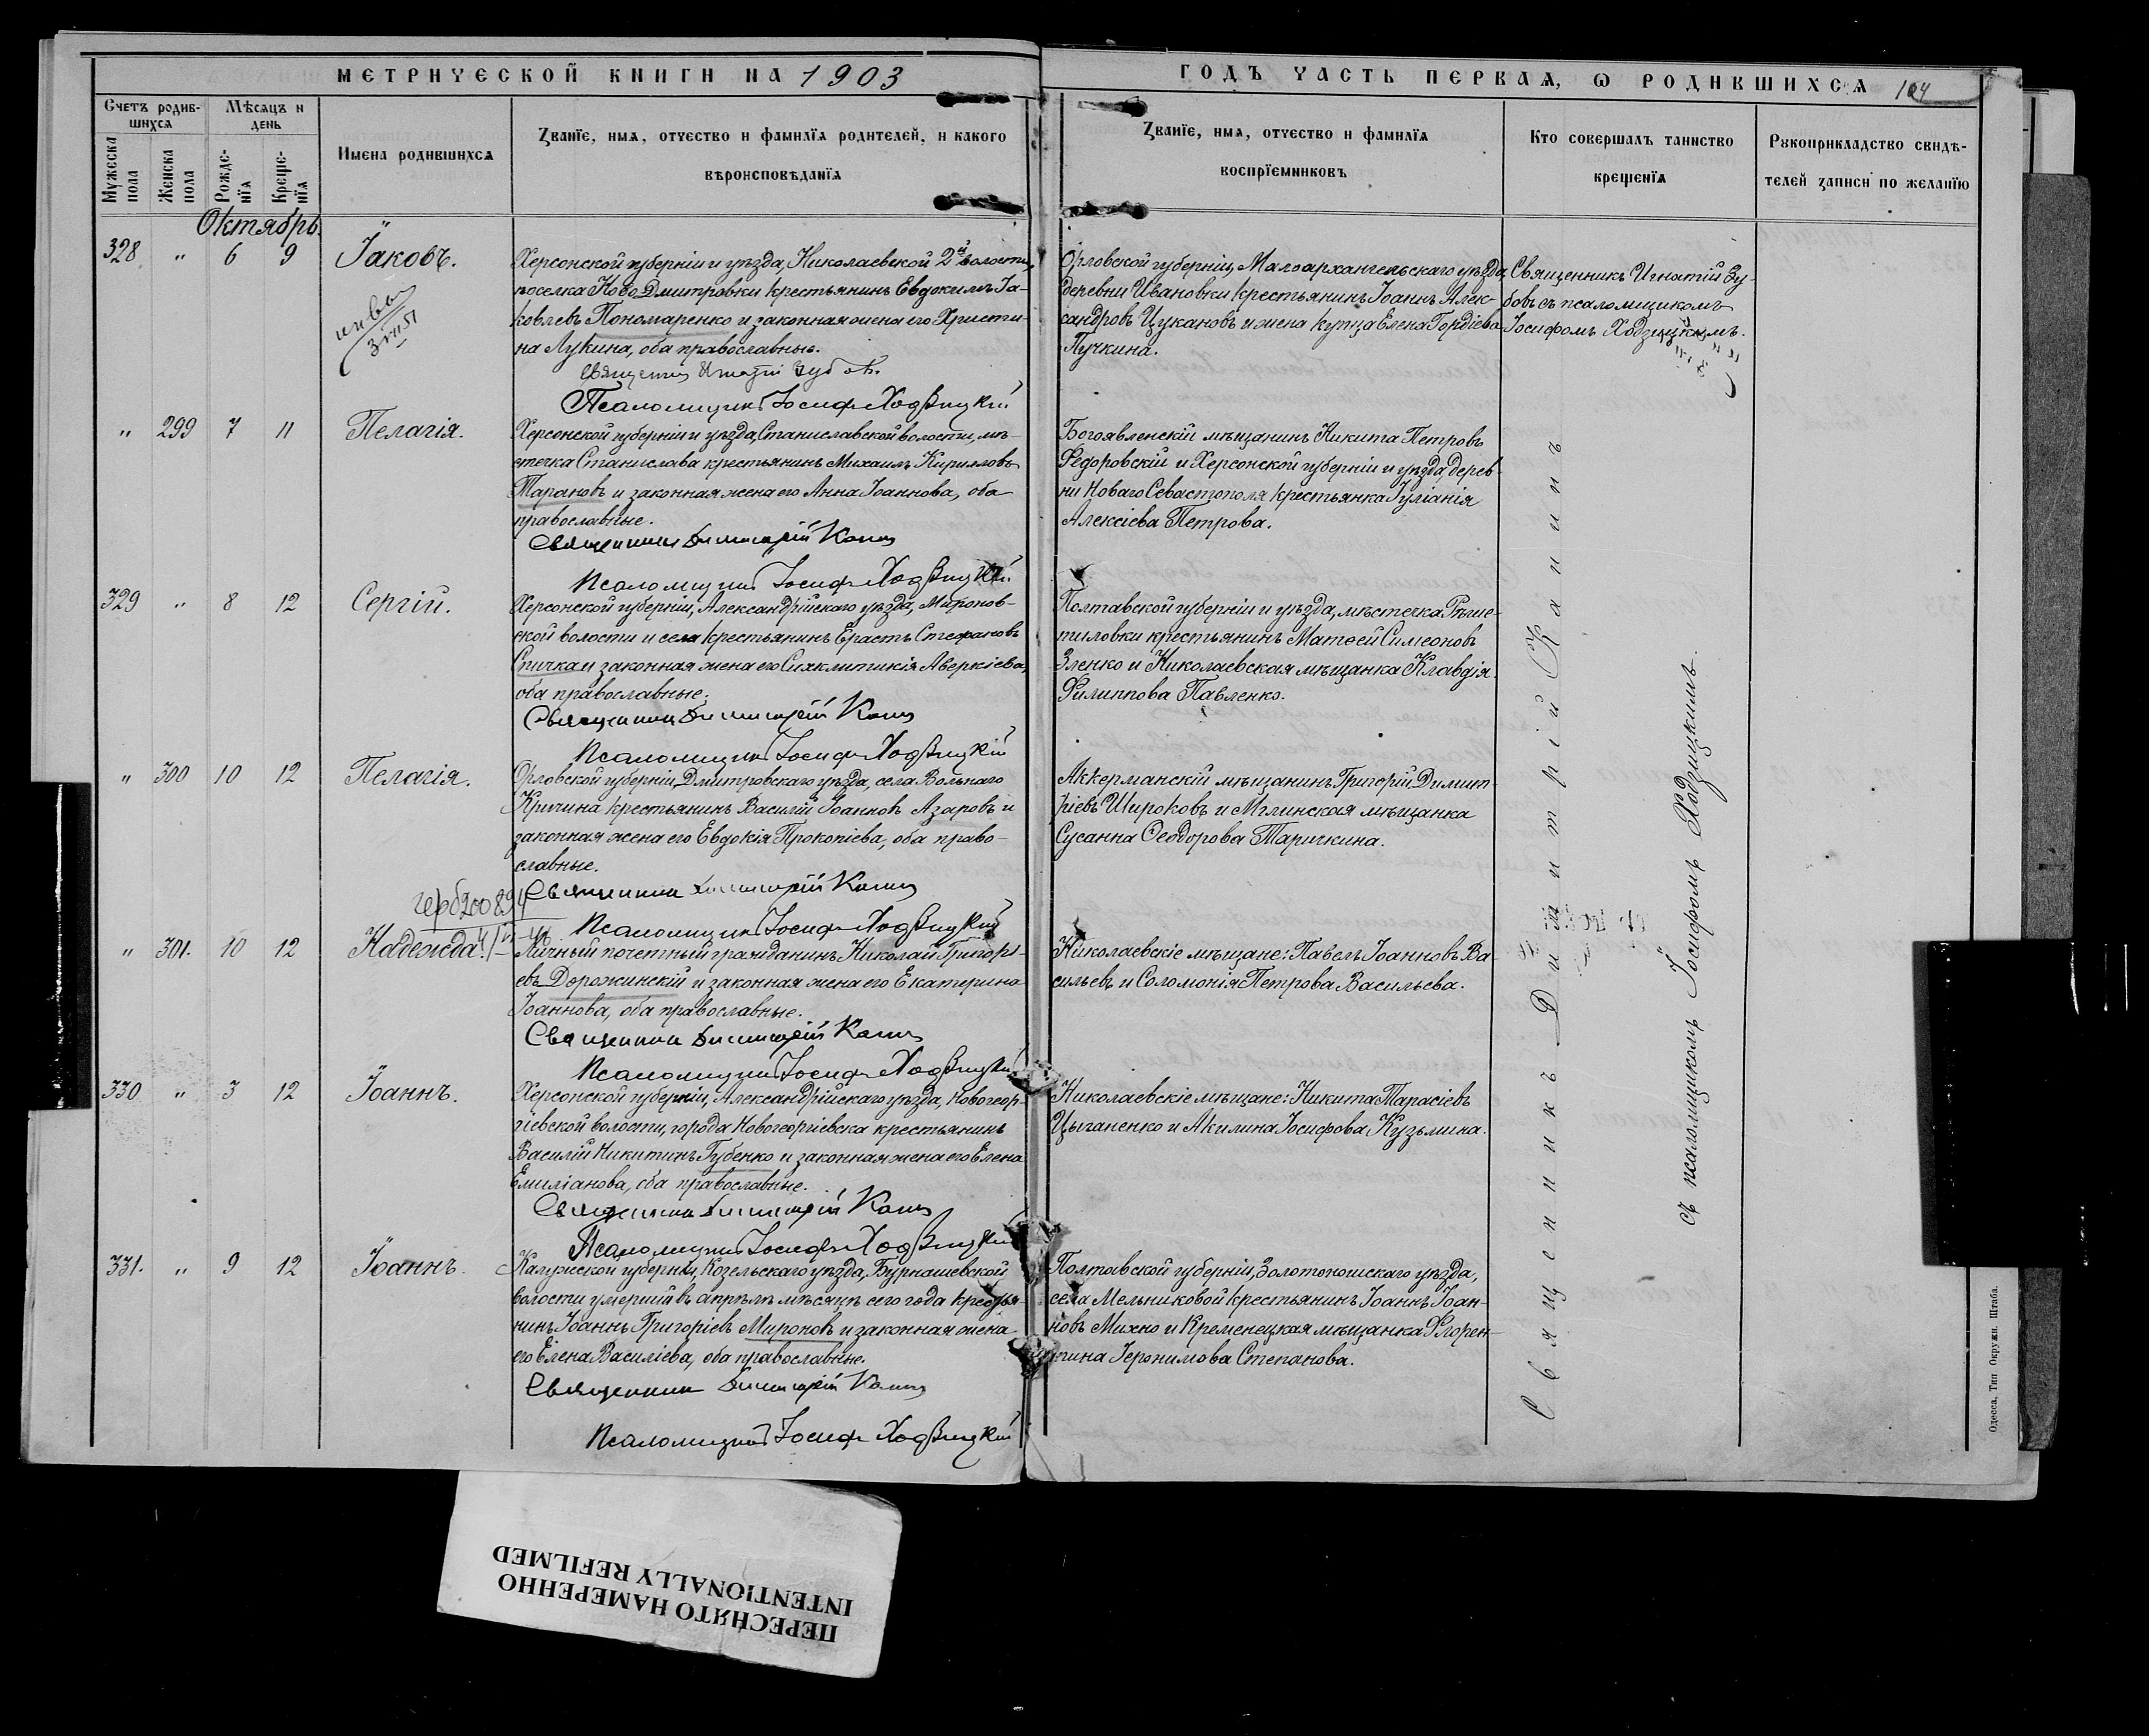 МЕТРИЧЕСКОЙ КНИГИ НА 1903
ГОДЪ ЧАСТЬ ПЕРВАЯ, Ѡ РОДИВШИХСЯ 104
Счетъ родив-
шихся
Мѣсяцъ и
день
Мужеска
пола
Женска
пола
Рожде-
нїя
Креще-
нїя
Имена родившихся
Званїе, имя, отчество и фамилїя родителей, и какого
вѣроисповѣданїя
Званїе, имя, отчество и фамилїя
воспрїемниковъ
Кто совершалъ таинство
крещенїя
Рукоприкладство свидѣ-
телей записи по желанїю
Октябрь.
328 " 6 9 Іаковъ.
Херсонской губерніи и уѣзда, Николаевской 2й волости,
поселка Ново Дмитровки крестьянинъ Евдокимъ Іа-
ковлевъ Пономаренко и законная жена его Христи-
на Лукина, оба православные.
Псаломщикъ Іосифъ Ходзицкій
Орловской губерніи, Малоархангельскаго уѣзда,
деревни Ивановки крестьянинъ Іоаннъ Алек-
сандровъ Цукановъ и жена купца Елена Гордіева
Пучкина.
Священникъ Игнатій Зу-
бовъ съ псаломщикомъ
Іосифомъ Ходзицкимъ.
" 299 7 11 Пелагія.
Херсонской губерніи и уѣзда, Станиславской волости, мѣ-
стечка Станислава крестьянинъ Михаилъ Кирилловъ
Тарановъ и законная жена его Анна Іоаннова, оба
православные.
Священникъ Димитрій Канинъ
Псаломщикъ Іосифъ Ходзицкій
Богоявленскій мѣщанинъ Никита Петровъ
Федоровскій и Херсонской губерніи и уѣзда, дерев-
ни Новаго Севастополя крестьянка Іуліанія
Алексіева Петрова.
329 " 8 12 Сергій.
Херсонской губерніи, Александрійскаго уѣзда, Миронов-
ской волости и села крестьянинъ Ерастъ Стефановъ
Спичка и законная жена его Синклитикія Аверкіева,
оба православные.
Священникъ Димитрій Канинъ
Псаломщикъ Іосифъ Ходзицкій
Полтавской губерніи и уѣзда, мѣстечка Рѣше-
тиловки крестьянинъ Матѳей Симеоновъ
Зленко и Николаевская мѣщанка Клавдія
Филиппова Павленко.
" 300 10 12 Пелагія.
Орловской губерніи, Дмитровскаго уѣзда, села Вольнаго
Кричина крестьянинъ Василій Іоанновъ Азаровъ и
законная жена его Евдокія Прокопіева, оба право-
славные.
Священникъ Димитрій Канинъ
Псаломщикъ Іосифъ Ходзицкій
Аккерманскій мѣщанинъ Григорій Димит-
ріевъ Широковъ и Мглинская мѣщанка
Сусанна Ѳеодорова Таричкина.
" 301. 10 12 Надежда.
Личный почетный гражданинъ Николай Григорі-
евъ Дорожинскій и законная жена его Екатерина
Іоаннова, оба православные.
Священникъ Димитрій Канинъ
Псаломщикъ Іосифъ Ходзицкій
Николаевскіе мѣщане: Павелъ Іоанновъ Ва-
сильевъ и Соломонія Петрова Васильева.
330 " 3 12 Іоаннъ.
Херсонской губерніи, Александрійскаго уѣзда, Новогеор-
гіевской волости, города Новогеоргіевска крестьянинъ
Василій Никитинъ Губенко и законная жена его Елена
Емиліанова, оба православные.
Священникъ Димитрій Канинъ
Псаломщикъ Іосифъ Ходзицкій
Николаевскіе мѣщане: Никита Тарасіевъ
Цыганенко и Акилина Іосифова Кузьмина.
331. " 9 12 Іоаннъ.
Калужской губерніи, Козельскаго уѣзда, Бурнашевской
волости умершій въ апрѣлѣ мѣсяцѣ сего года крестья-
нинъ Іоаннъ Григоріевъ Мироновъ и законная жена
его Елена Василіева, оба православные.
Священникъ Димитрій Канинъ
Псаломщикъ Іосифъ Ходзицкій
Полтавской губерніи, Золотоношскаго уѣзда,
села Мельниковой крестьянинъ Іоаннъ Іоан-
новъ Михно и Кременецкая мѣщанка Флорен-
тина Іеронимова Степанова.
Священникъ Димитрій Канинъ
съ псаломщикомъ Іосифомъ Ходзицкимъ.
Одесса, Тип Окружн. Штаба.
ПЕРЕСНЯТО НАМЕРЕННО
INTENTIONALLY REFILMED